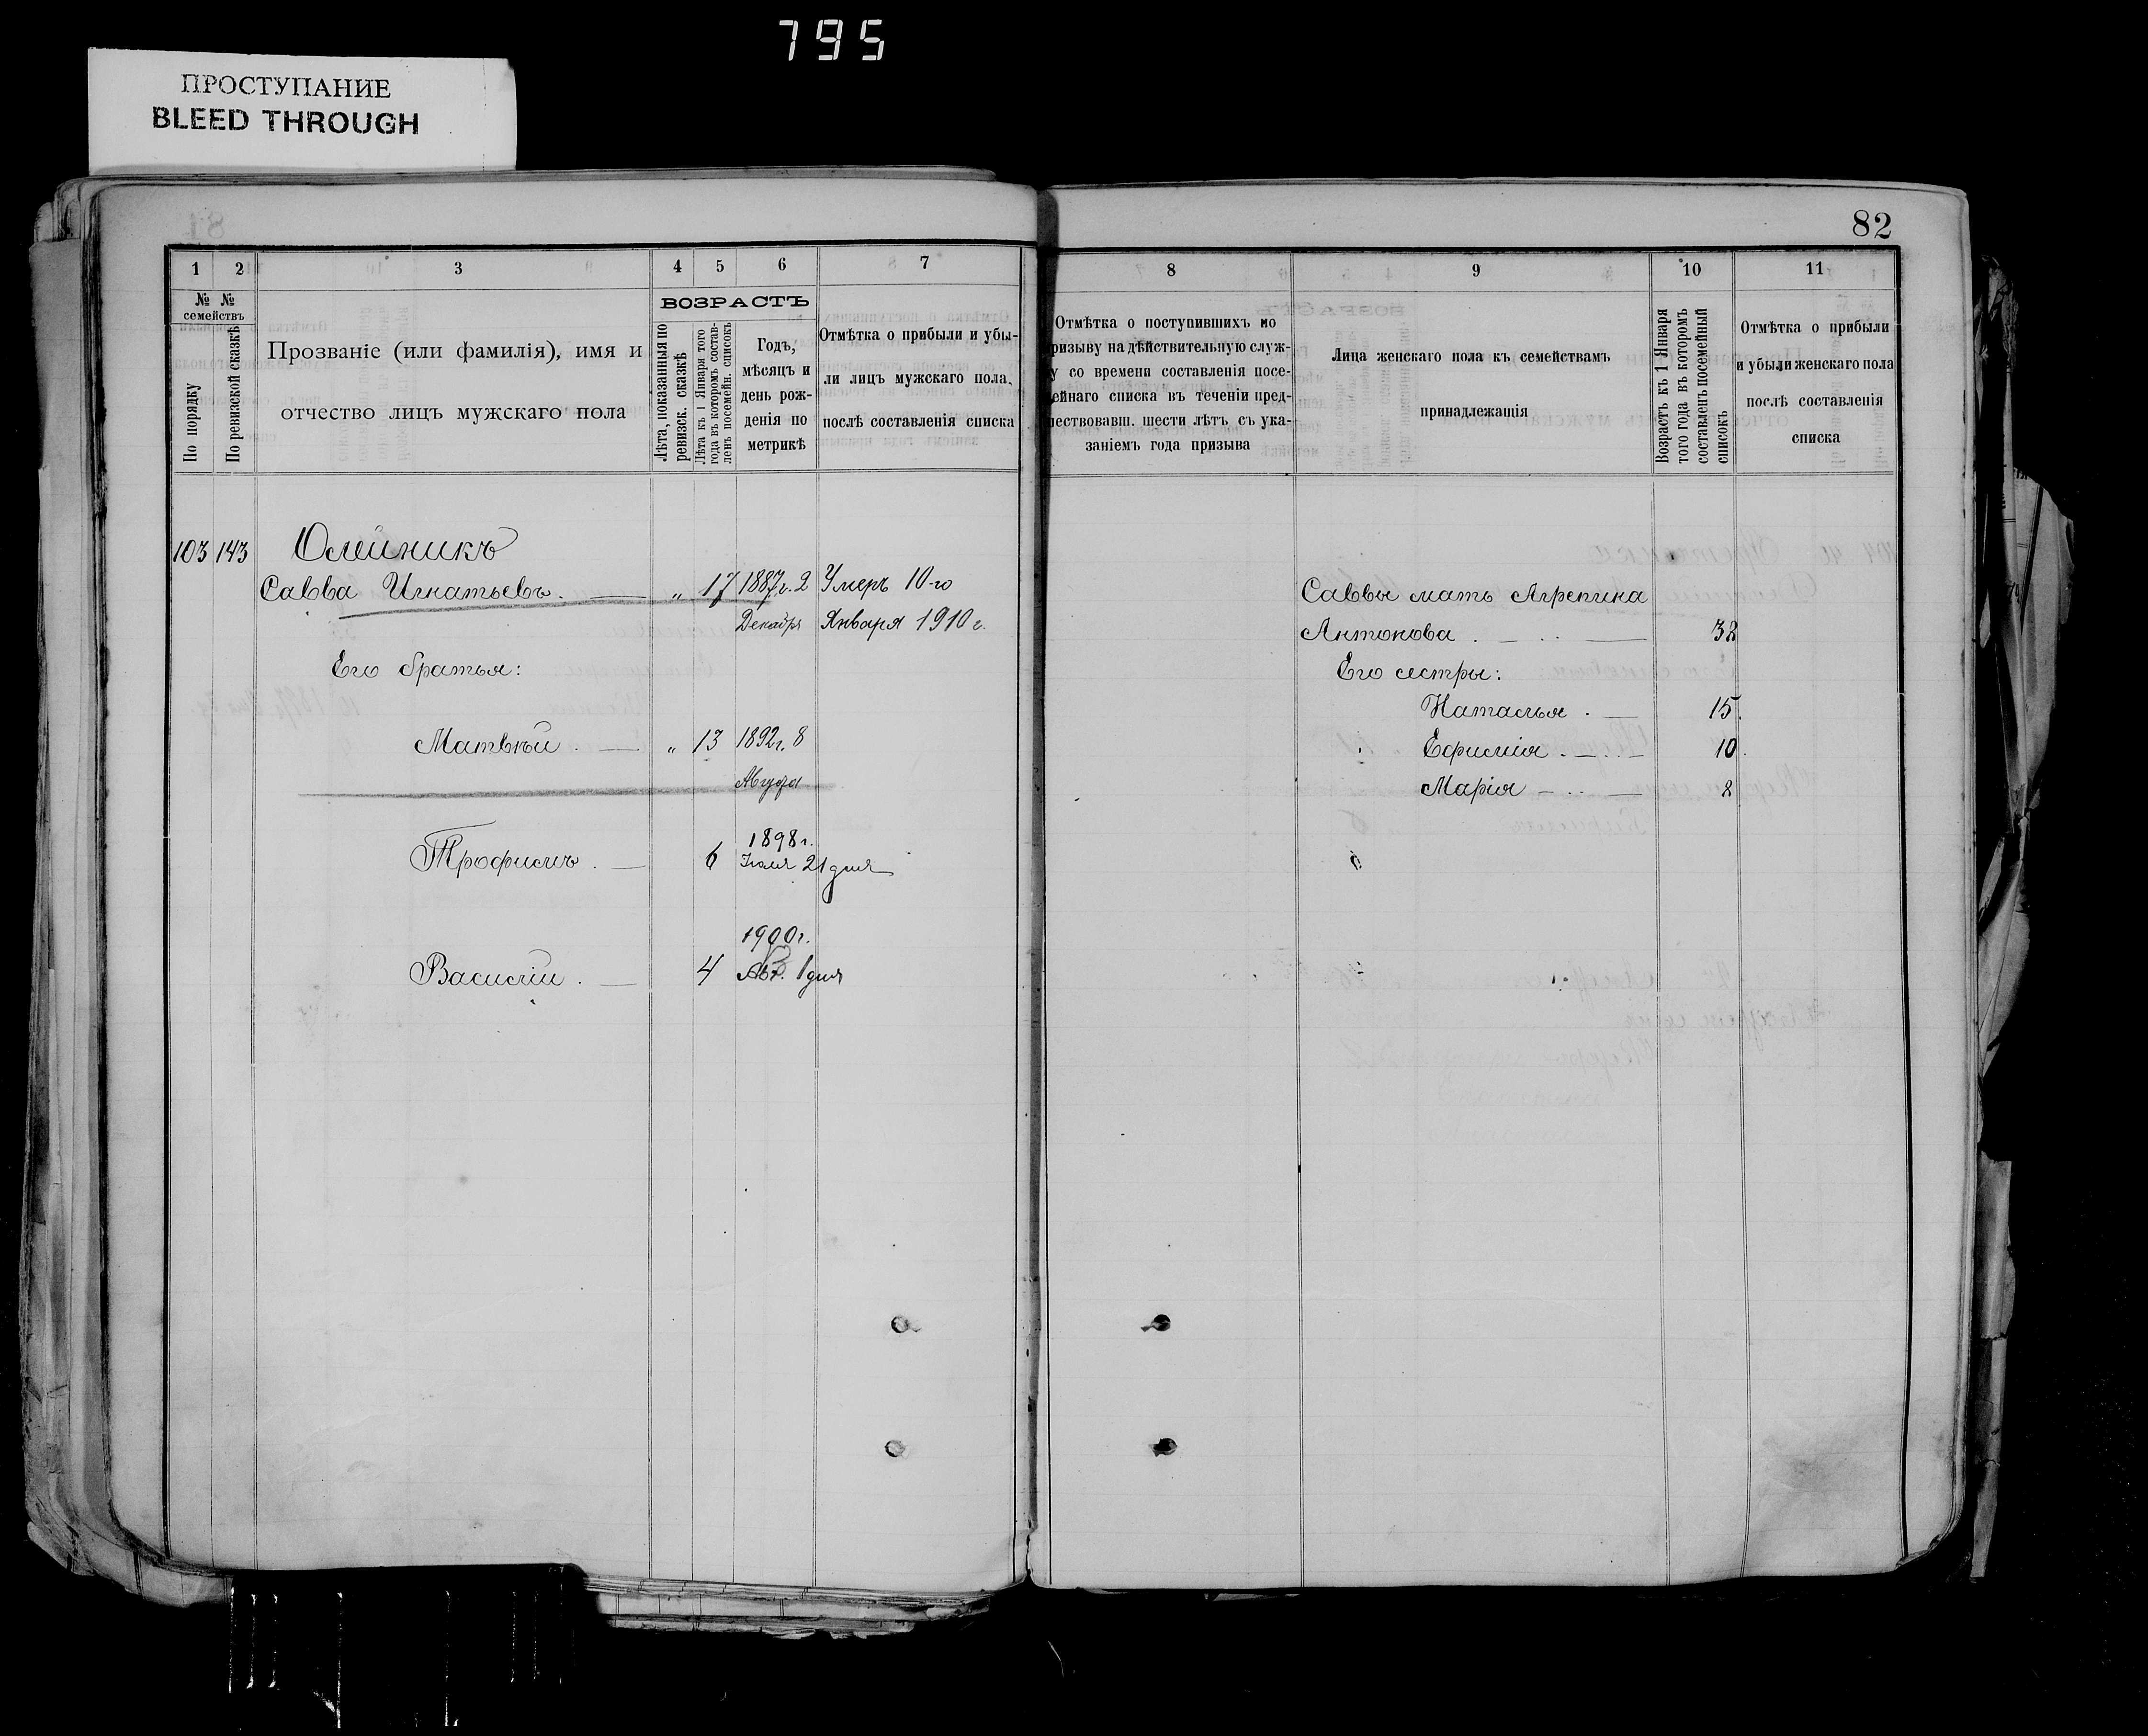 795
ПРОСТУПАНИЕ
BLEED THROUGH
82
1 2 3 4 5 6 7
№ № семействъ
По порядку
По ревизской сказкѣ
Прозваніе (или фамилія), имя и
отчество лицъ мужскаго пола
ВОЗРАСТЪ
Лѣта, показанныя по
ревизск. сказкѣ
Лѣта къ 1 Января того
года въ которомъ состав-
ленъ посемейн. списокъ
Годъ,
мѣсяцъ и
день рож-
денія по
метрикѣ
Отмѣтка о прибыли и убы-
ли лицъ мужскаго пола,
послѣ составленія списка
103 143 Олейникъ
Савва Игнатьевъ. — „ 17 1887г. 2 Умеръ 10-го
Декабря Января 1910 г.
Его братья:
Матвѣй . — „ 13 1892г. 8
Августа
1898г.
Трофимъ . — 6 Іюля 21 дня
1900г.
Василій . — 4 Авг. 1 дня
8 9 10 11
Отмѣтка о поступившихъ по
ризыву на дѣйствительную служ-
у со времени составленія посе-
ейнаго списка въ теченіи пред-
шествовавш. шести лѣтъ съ ука-
заніемъ года призыва
Лица женскаго пола къ семействамъ
принадлежащія
Возрастъ къ 1 Января
того года въ которомъ
составленъ посемейный
списокъ
Отмѣтка о прибыли
и убыли женскаго пола
послѣ составленія
списка
Саввы мать Агрепина
Антонова . — 38
Его сестры:
Наталья . — 15.
Ефимія . — 10.
Марія — 2